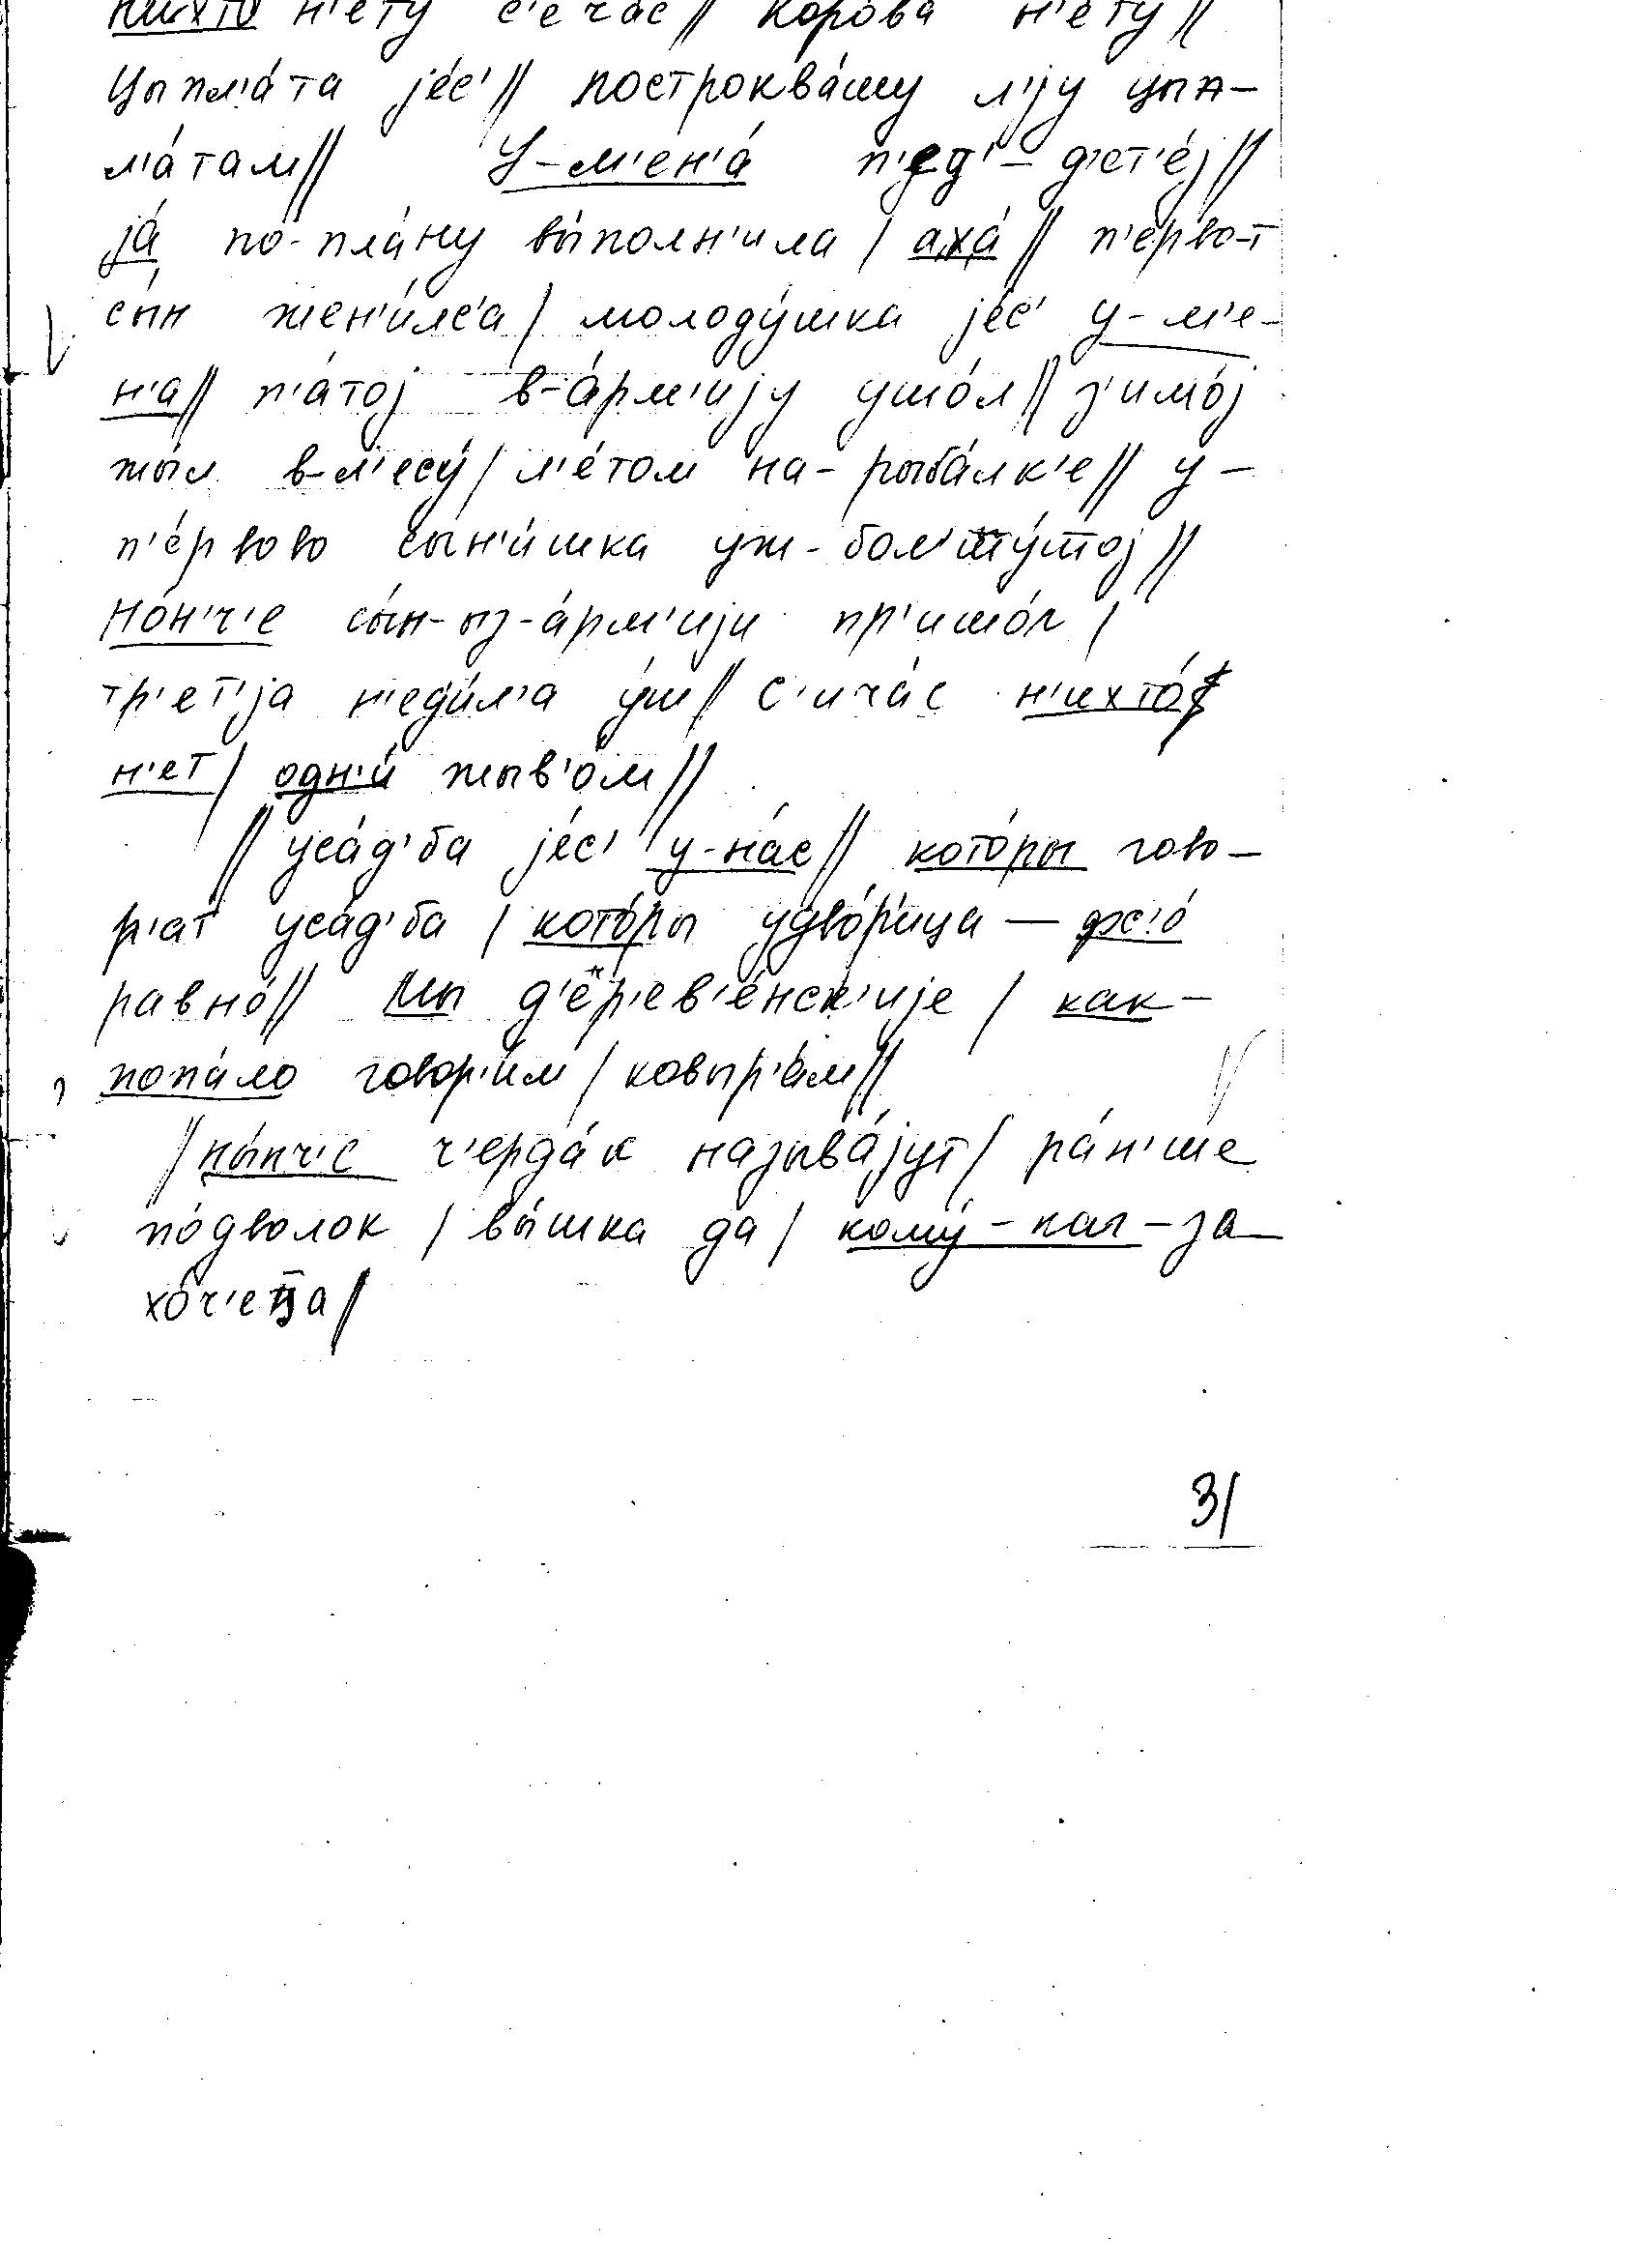 н'ету с'е час // корова н'ету //
цыпл'а́та jе́с' // построква́шу л'jу цып–
л'а́там // У–м'ен'а́ п'ед'–д'ет'е́j //
jа́ по-пла́ну вы́полн'ила / аха́ // п'е́рво-т
сы́н жен'и́лс'а / молоду́шка jе́с' у–м'е–
н'а // п'а́тоj в–а́рм'иjу ушо́л // з'имо́j
жы́л в–л'есу́ / л'е́том на–рыба́лк'е // у–
п'е́рвово сын'и́шка уж–бол'шу́шоj //
но́н'ч'е сы́н–ыз–а́рм'иjи пр'ишо́л /
тр'ет'jа н'еди́л'а у́ш // с'ича́с н'ихто́
н'ет / одн'и́ жыв'о́м //
// уса́д'ба jе́с' у-на́с // кото́ры гово–
р'а́т уса́д'ба / кото́ры удво́р'ица — фс'о́
равно́ // мы д'ер'ев'е́нск'иjе / как–
попа́ло говор'и́м / ковыр'а́м //
/ ны́нч'е ч'ерда́к называ́jут / ра́н'ше
по́дволок / вы́шка да / кому́–как–за
хо́ч'еца //
31